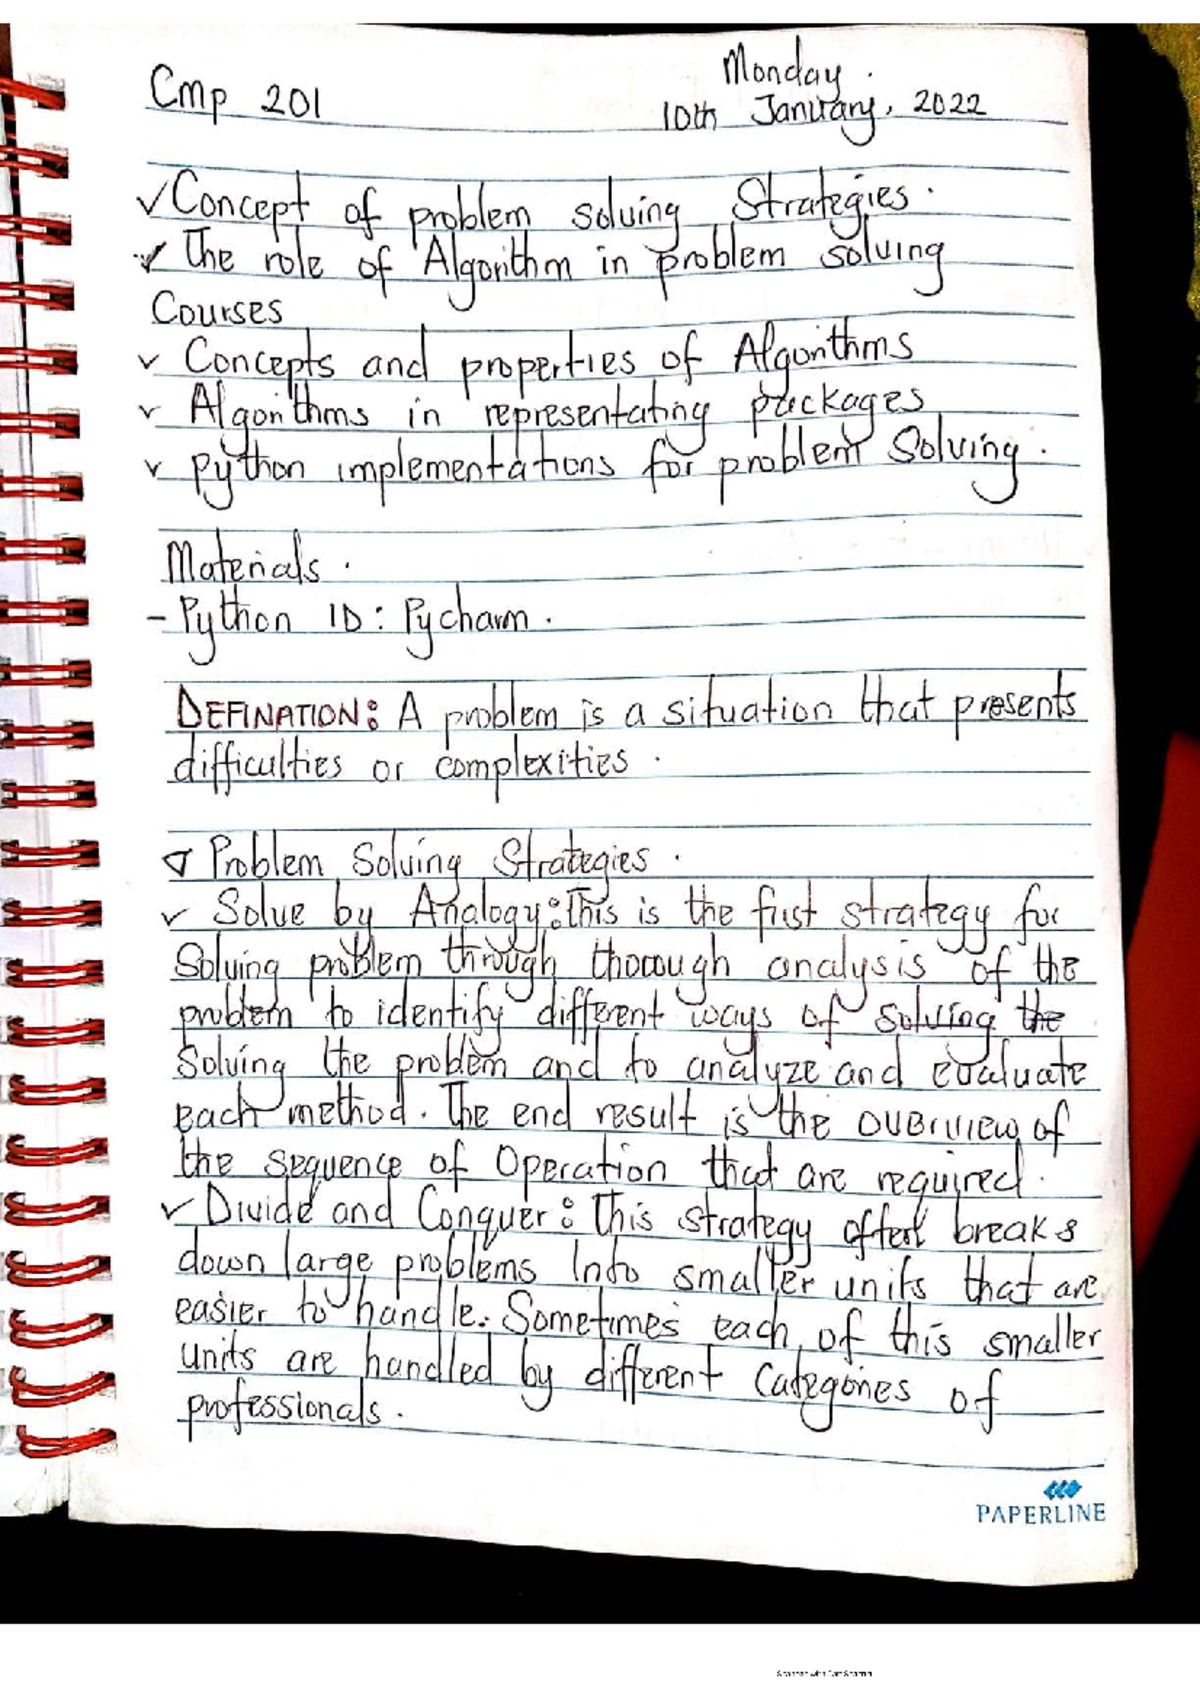 Monday.
Cmp 201
10th January, 2022
✓ Concept of problem solving Strategies.
✓ The role of Algorithm in problem solving
Courses
✓ Concepts and properties of Algorithms
✓ Algorithms in representating packages
✓ Python implementations for problem Solving.
Materials.
- Python ID: Pycharm.
DEFINATION: A problem is a situation that presents
difficulties or complexities.
∇ Problem Solving Strategies.
✓ Solve by Analogy: This is the first strategy for
Solving problem through thorough analysis of the
problem to identify different ways of solving the
Solving the problem and to analyze and evaluate
each method. The end result is the overview of
the sequence of Operation that are required.
✓ Divide and Conquer: This strategy often breaks
down large problems Into smaller units that are
easier to handle. Sometimes each of this smaller
units are handled by different Categories of
professionals.
PAPERLINE